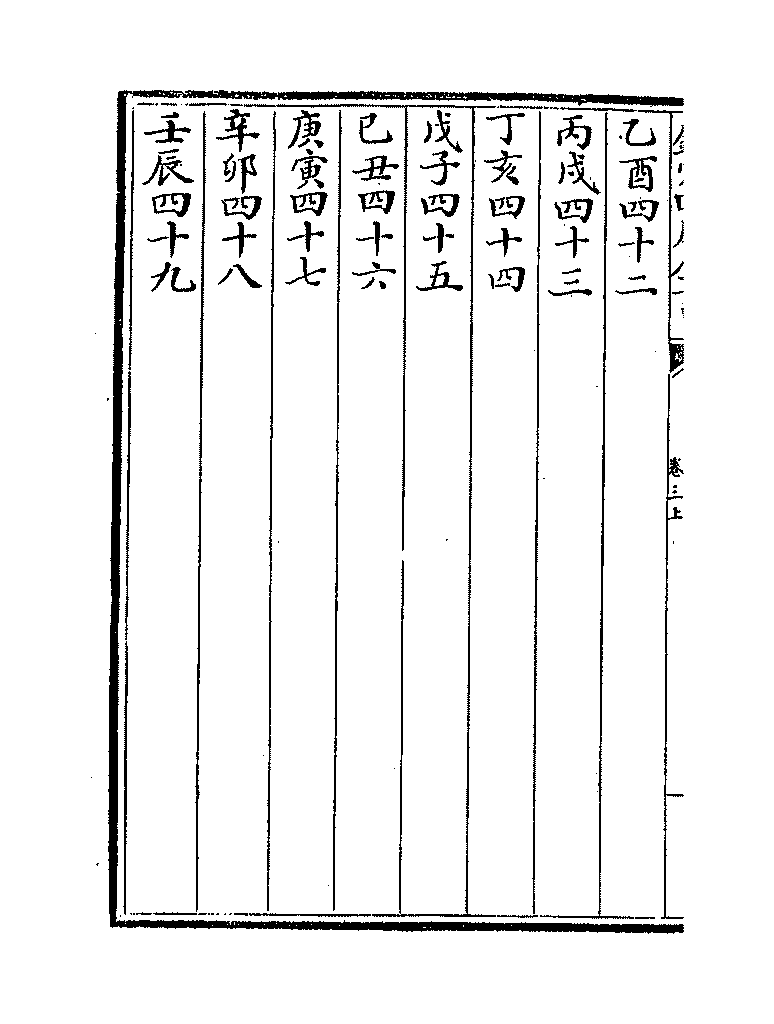 乙酉四十二
丙戌四十三
丁亥四十四
戊子四十五
己丑四十六
庚寅四十七
辛卯四十八
壬辰四十九
卷三上